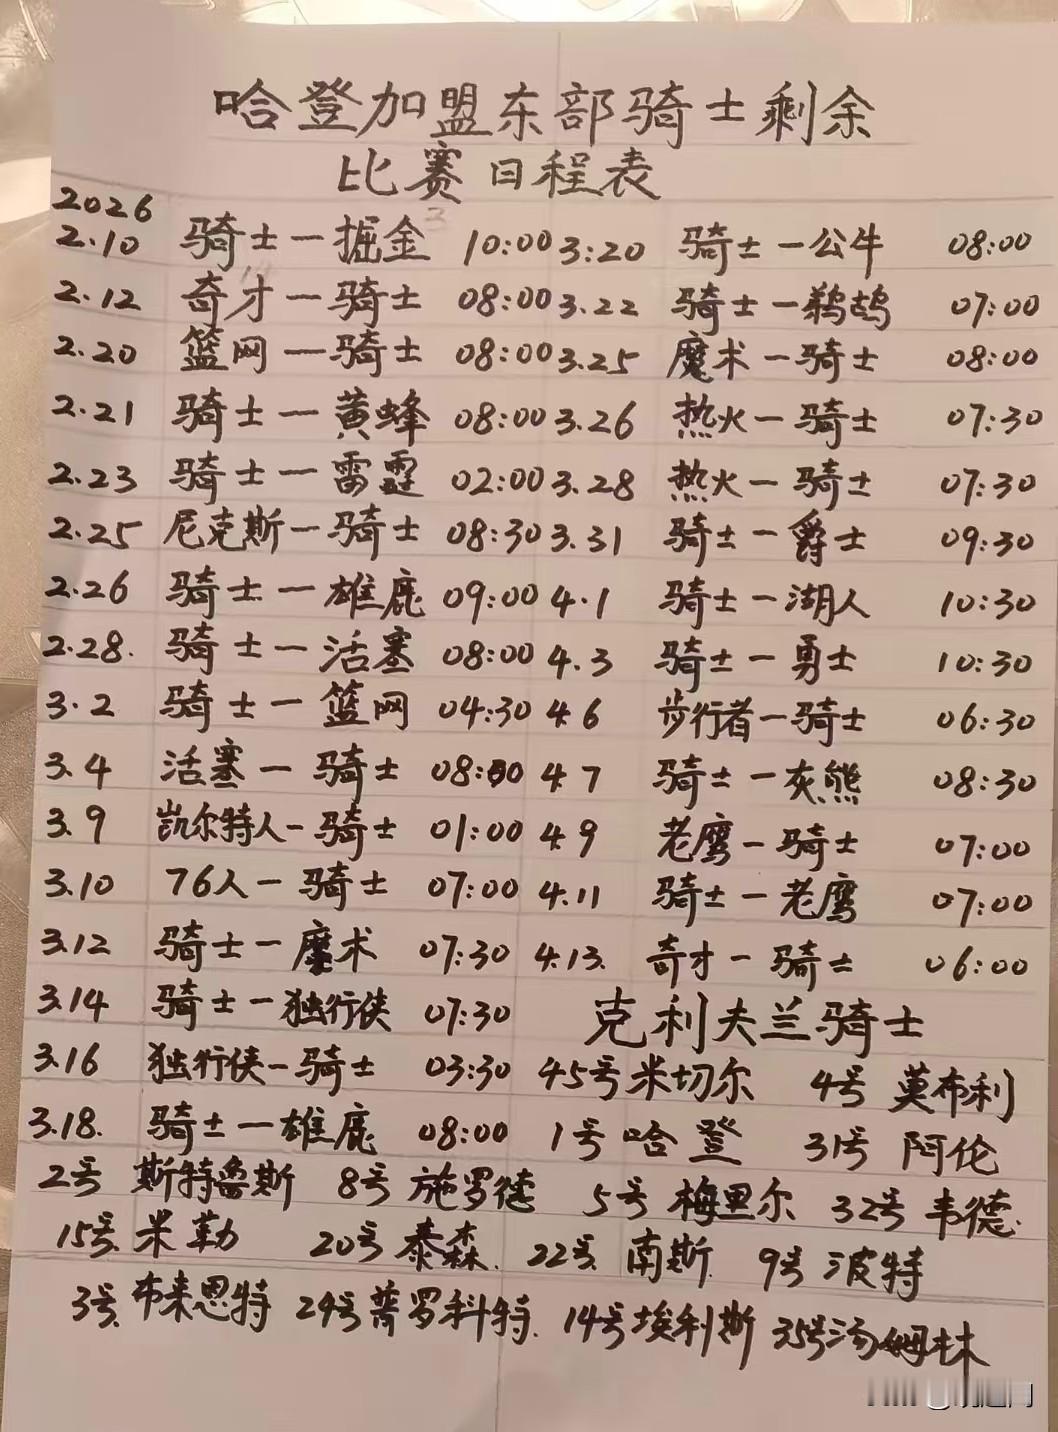 哈登加盟东部骑士剩余
比赛日程表
2026
2.10 骑士一掘金 10:00 3.20 骑士一公牛 08:00
2.12 奇才一骑士 08:00 3.22 骑士一鹈鹕 07:00
2.20 篮网一骑士 08:00 3.25 魔术一骑士 08:00
2.21 骑士一黄蜂 08:00 3.26 热火一骑士 07:30
2.23 骑士一雷霆 02:00 3.28 热火一骑士 07:30
2.25 尼克斯一骑士 08:30 3.31 骑士一爵士 09:30
2.26 骑士一雄鹿 09:00 4.1 骑士一湖人 10:30
2.28. 骑士一活塞 08:00 4.3 骑士一勇士 10:30
3.2 骑士一篮网 04:30 4.6 步行者一骑士 06:30
3.4 活塞一骑士 08:00 4.7 骑士一灰熊 08:30
3.9 凯尔特人一骑士 01:00 4.9 老鹰一骑士 07:00
3.10 76人一骑士 07:00 4.11 骑士一老鹰 07:00
3.12 骑士一魔术 07:30 4.13. 奇才一骑士 06:00
3.14 骑士一独行侠 07:30 克利夫兰骑士
3.16 独行侠一骑士 03:30 45号米切尔 4号莫布利
3.18. 骑士一雄鹿 08:00 1号哈登 31号阿伦
2号斯特鲁斯 8号施罗德 5号梅里尔 32号韦德.
15号.米勒 20号泰森. 22号.南斯. 9号波特
3号.布来恩特 24号普罗科特. 14号埃利斯 35号汤姆林